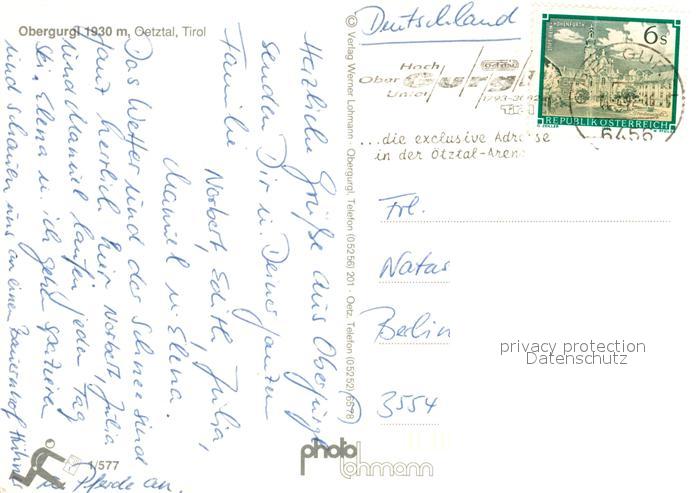 Obergurgl 1930 m, Oetztal, Tirol
Herzliche Grüße aus Obergurgl
senden Dir u. Deiner ganzen
Familie
Norbert, Edith, Julia,
Manuel u. Elena.
Das Wetter und der Schnee sind
ganz herrlich hier. Norbert, Julia
und Manuel laufen jeden Tag
Ski, Elena u. ich gehen spazieren
und schauen uns an einem Bauernhof Hühner
u. Pferde an.
1/577
© Verlag Werner Lohmann · Obergurgl, Telefon (05256) 201 · Oetz, Telefon (05252) 6578
photo
lohmann
Deutschland
Hoch
Ober Gurgl
Unter
1793-3082
Tirol
...die exclusive Adresse
in der Ötztal-Arena
STIFT HOHENFURTH
6 s
REPUBLIK ÖSTERREICH
6456
Frl.
Natas
Berlin
3554
privacy protection
Datenschutz